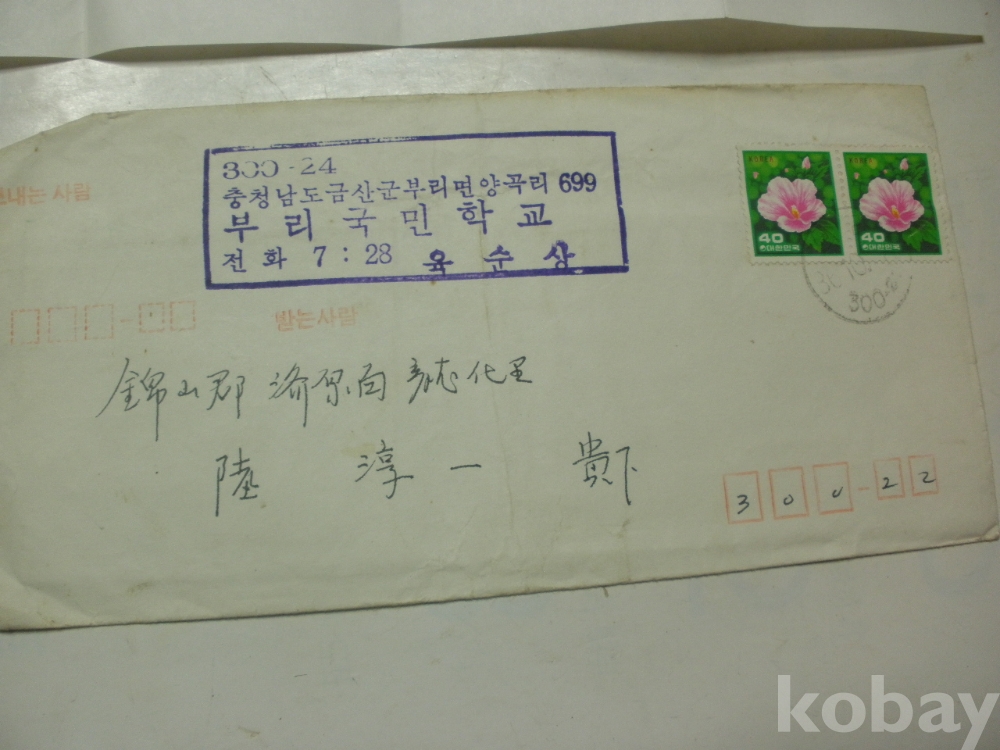 보내는 사람
300-24
충청남도금산군부리면양곡리 699
부리국민학교
전화 7 : 28 육순상
40
대한민국
40
대한민국
300-2
받는사람
錦山郡 濟原面 化里
陸 淳 一 貴下
300-22
kobay